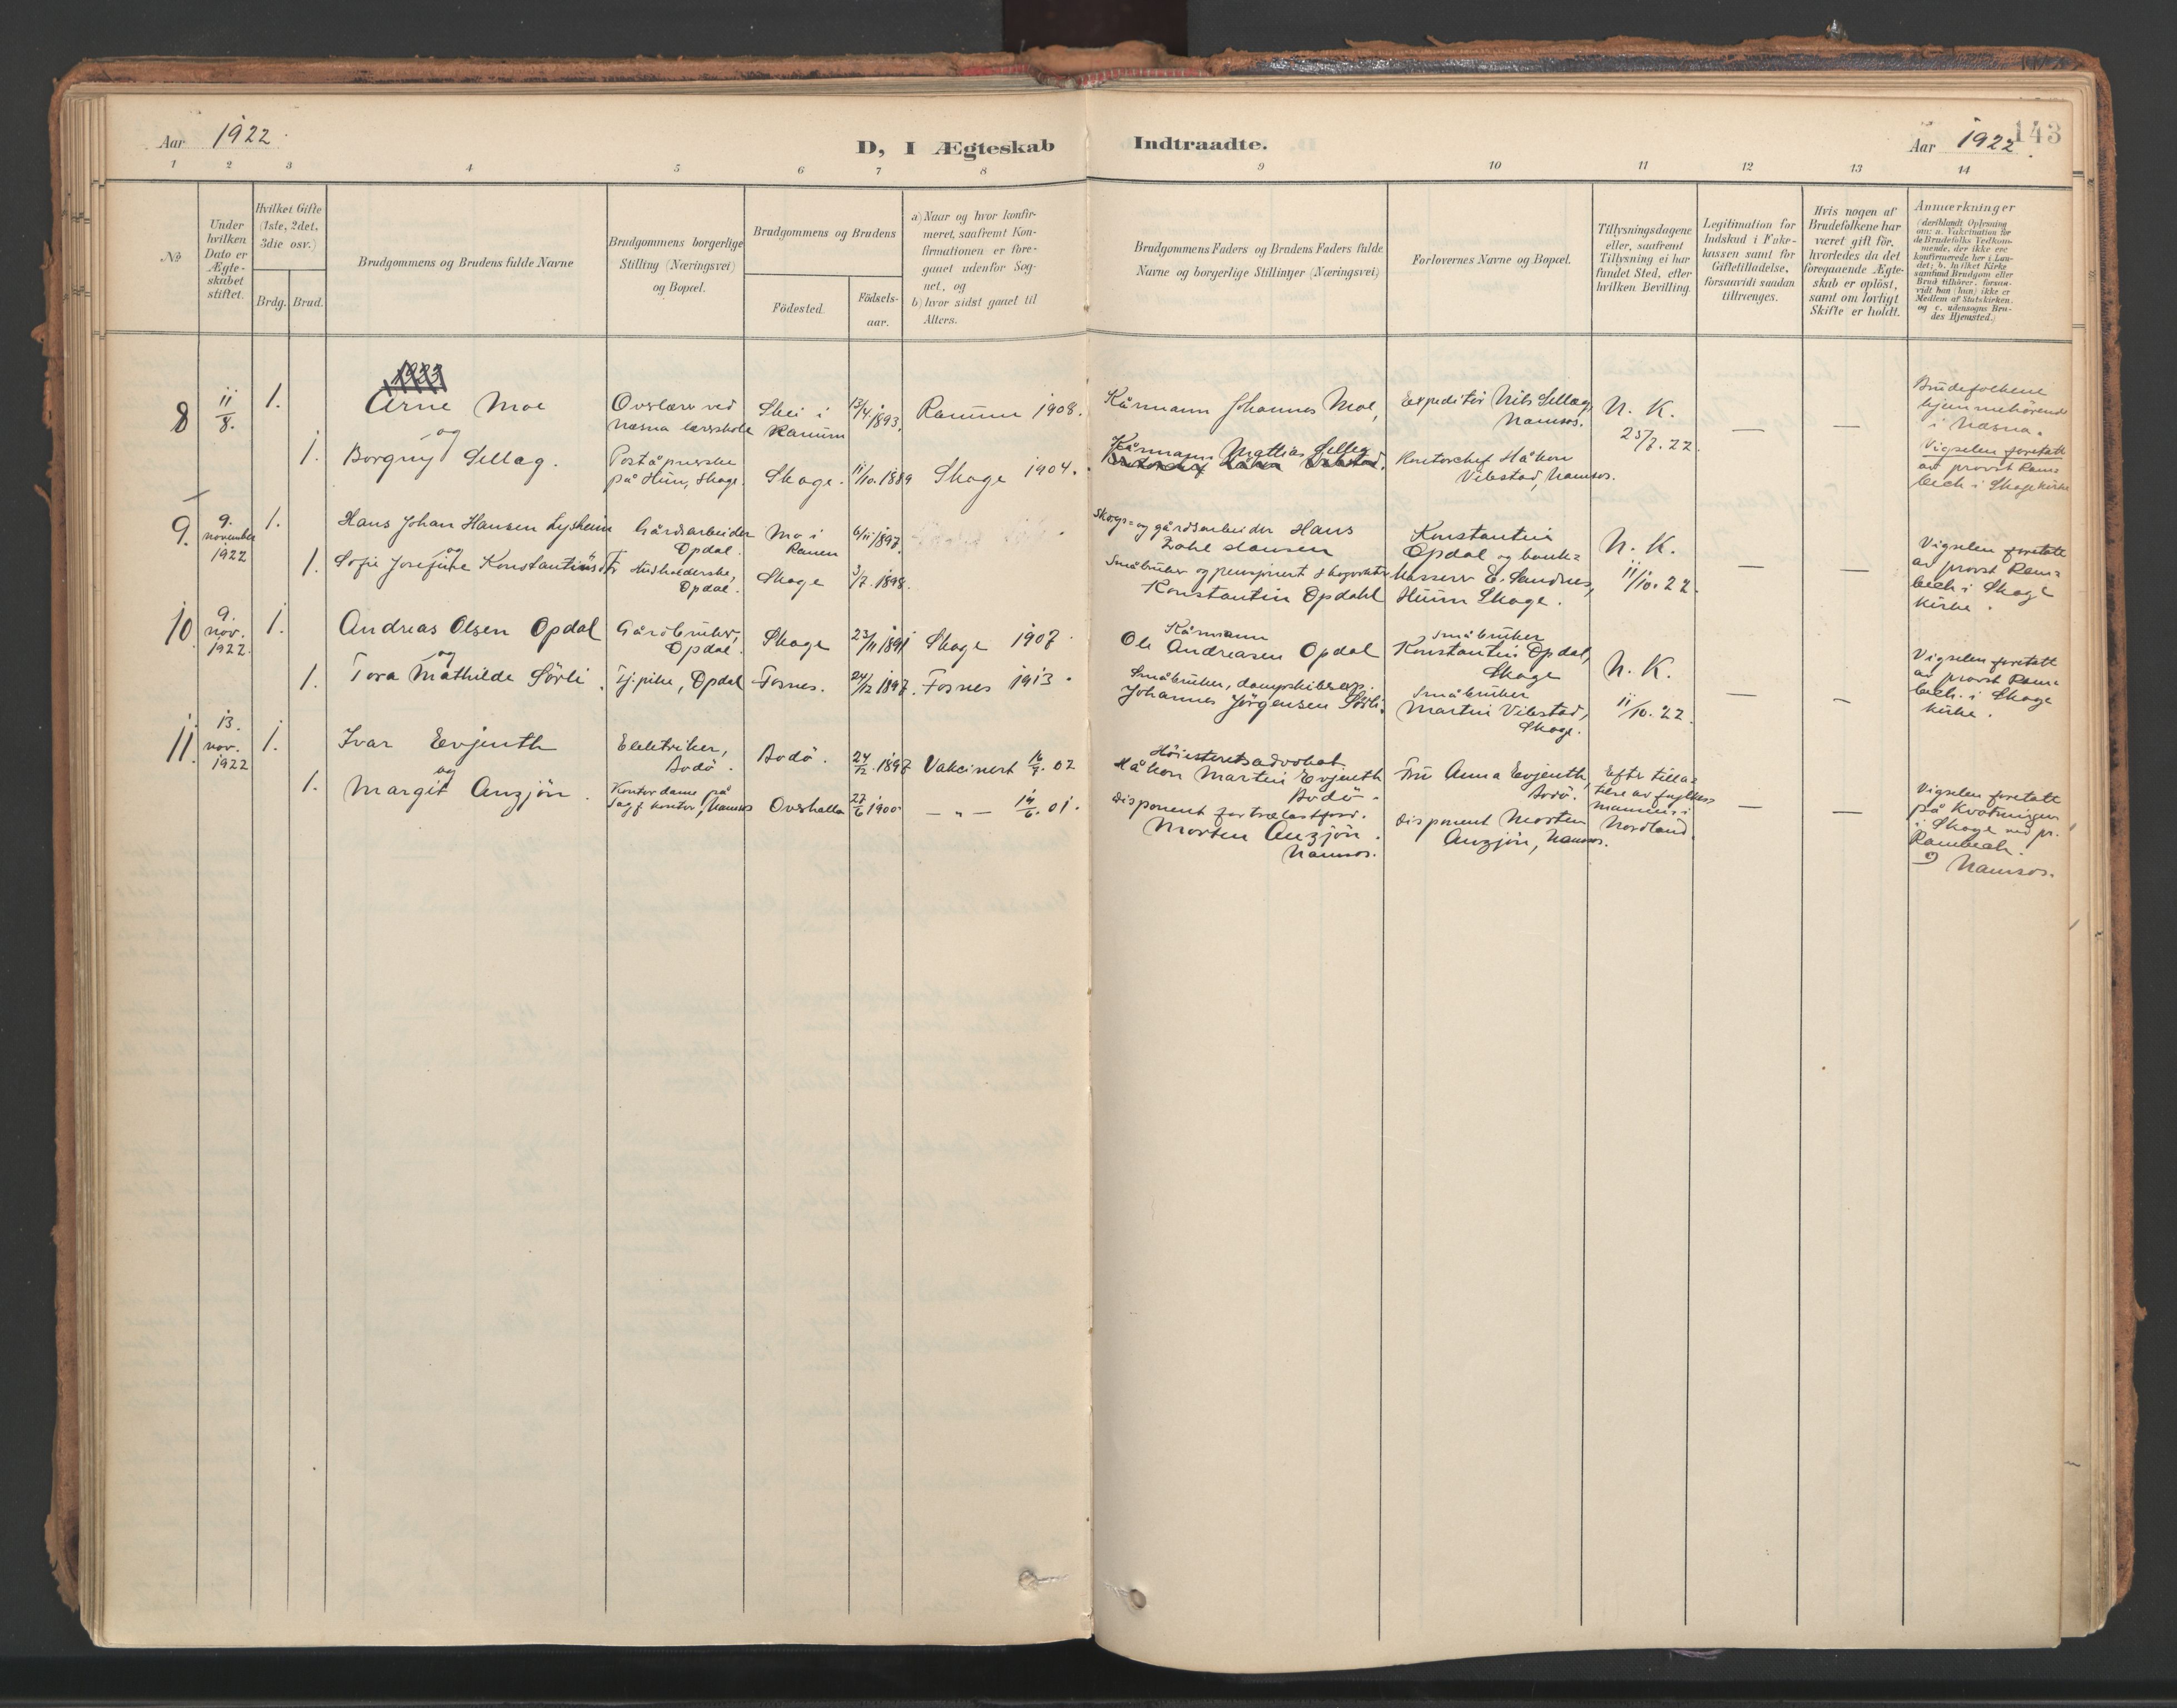 Aar 1922.
D, I Ægteskab Indtraadte.
Aar 1922.
143
1 2 3 4 5 6 7 8 9 10 11 12 13 14
No
Under hvilken Dato er Ægte-skabet stiftet.
Hvilket Gifte (1ste, 2det, 3die osv.)
Brdg. Brud.
Brudgommens og Brudens fulde Navne
Brudgommens borgerlige Stilling (Næringsvei) og Bopæl.
Brudgommens og Brudens
Födested.
Födsels-aar.
a) Naar og hvor konfir-
meret, saafremt Kon-
firmationen er fore-
gaaet udenfor Sog-
net, og
b) hvor sidst gaaet til
Alters.
Brudgommens Faders og Brudens Faders fulde
Navne og borgerlige Stillinger (Næringsvei)
Forlovernes Navne og Bopæl.
Tillysningsdagene
eller, saafremt
Tillysning ei har
fundet Sted, efter
hvilken Bevilling.
Legitimation for
Indskud i Enke-
kassen samt for
Giftetilladelse,
forsaavidt saadan
tiltrænges.
Hvis nogen af
Brudefolkene har
været gift för,
hvorledes da det
foregaaende Ægte-
skab er oplöst,
samt om lovligt
Skifte er holdt.
Anmærkninger
(deriblandt Oplysning
om: a. Vakcination for
de Brudefolks Vedkom-
mende, der ikke ere
konfirmerede her i Lan-
det; b. hvilket Kirke
samfund Brudgom eller
Brud tilhører, forsaa-
vidt han (hun) ikke er
Medlem af Statskirken,
og c. udensogns Bru-
des Hjemsted.)
8 11/8. 1. Arne Moe Overlærer ved Næsna lærerskole Skei i Ranum 13/4 1893. Ranum 1908. Kårmann Johannes Moe, Expeditör Nils Sellæg, Namsos. N. K. 25/7. 22. — — Brudefolkene hjemmehörende i Næsna.
og
1. Borgny Sellæg. Poståpnerske på Hun, Skage. Skage. 11/10. 1889 Skage 1904. Kårmann Mathias Sellæg Kontorchef Håkon Vibstad, Namsos. Vigselen foretatt av provst Rambech i Skage kirke
9. 9. november 1922 1. Hans Johan Hansen Lysheim Gårdsarbeider Opdal. Mo i Ranen 6/11 1897. Skogs- og gårdsarbeider Hans Dahl Hansen Konstantin Opdal og bank- N. K. 11/10. 22. — — Vigselen foretatt av provst Rambech i Skage kirke.
og
1. Sofie Josefine Konstantinsdtr Husholderske, Opdal. Skage 3/7. 1898. Småbruker og pensjonert skogvokter Konstantin Opdahl kasserer E. Sandnes, Hunn Skage.
10. 9. nov. 1922. 1. Andreas Olsen Opdal Gårdbruker, Opdal. Skage 23/11 1891 Skage 1907. Kårmann Ole Andreasen Opdal Småbruker Konstantin Opdal, Skage N. K. 11/10. 22. — — Vigselen foretatt av provst Rambech i Skage kirke.
og
1. Tora Mathilde Sörli. Tj. pike, Opdal Fosnes. 24/12 1897. Fosnes 1913. Småbruker, dampskibsexp. Johannes Jörgensen Sörli. Småbruker Martin Vibstad, Skage.
11. 13. nov. 1922 1. Ivar Evjenth Elektriker, Bodö. Bodö. 24/12. 1897 Vakcinert 16/9. 02 Höiesteretsadvokat Håkon Martin Evjenth Bodö. Fru Anna Evjenth, Bodö. Efter tilla-telse av fylkesmannen i Nordland. — — Vigselen foretatt på Kvatningen i Skage ved pr. Rambech.
og
1. Margit Anzjön. Kontordame på Sagf kontor, Namsos Overhalla 27/6 1900 — „ — 14/6. 01. Disponent for trælastforr. Morten Anzjön. Namsos. Disponent Morten Anzjön, Namsos. Namsos.